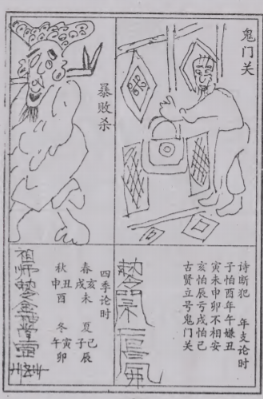 鬼门关
暴败杀
诗断犯 年支论时
子怕酉年午嫌丑
寅未申卯不相安
亥怕辰亏戌怕已
古贤立号鬼门关
四季论时
春戌亥未 夏子己辰
秋申丑酉 冬午寅卯